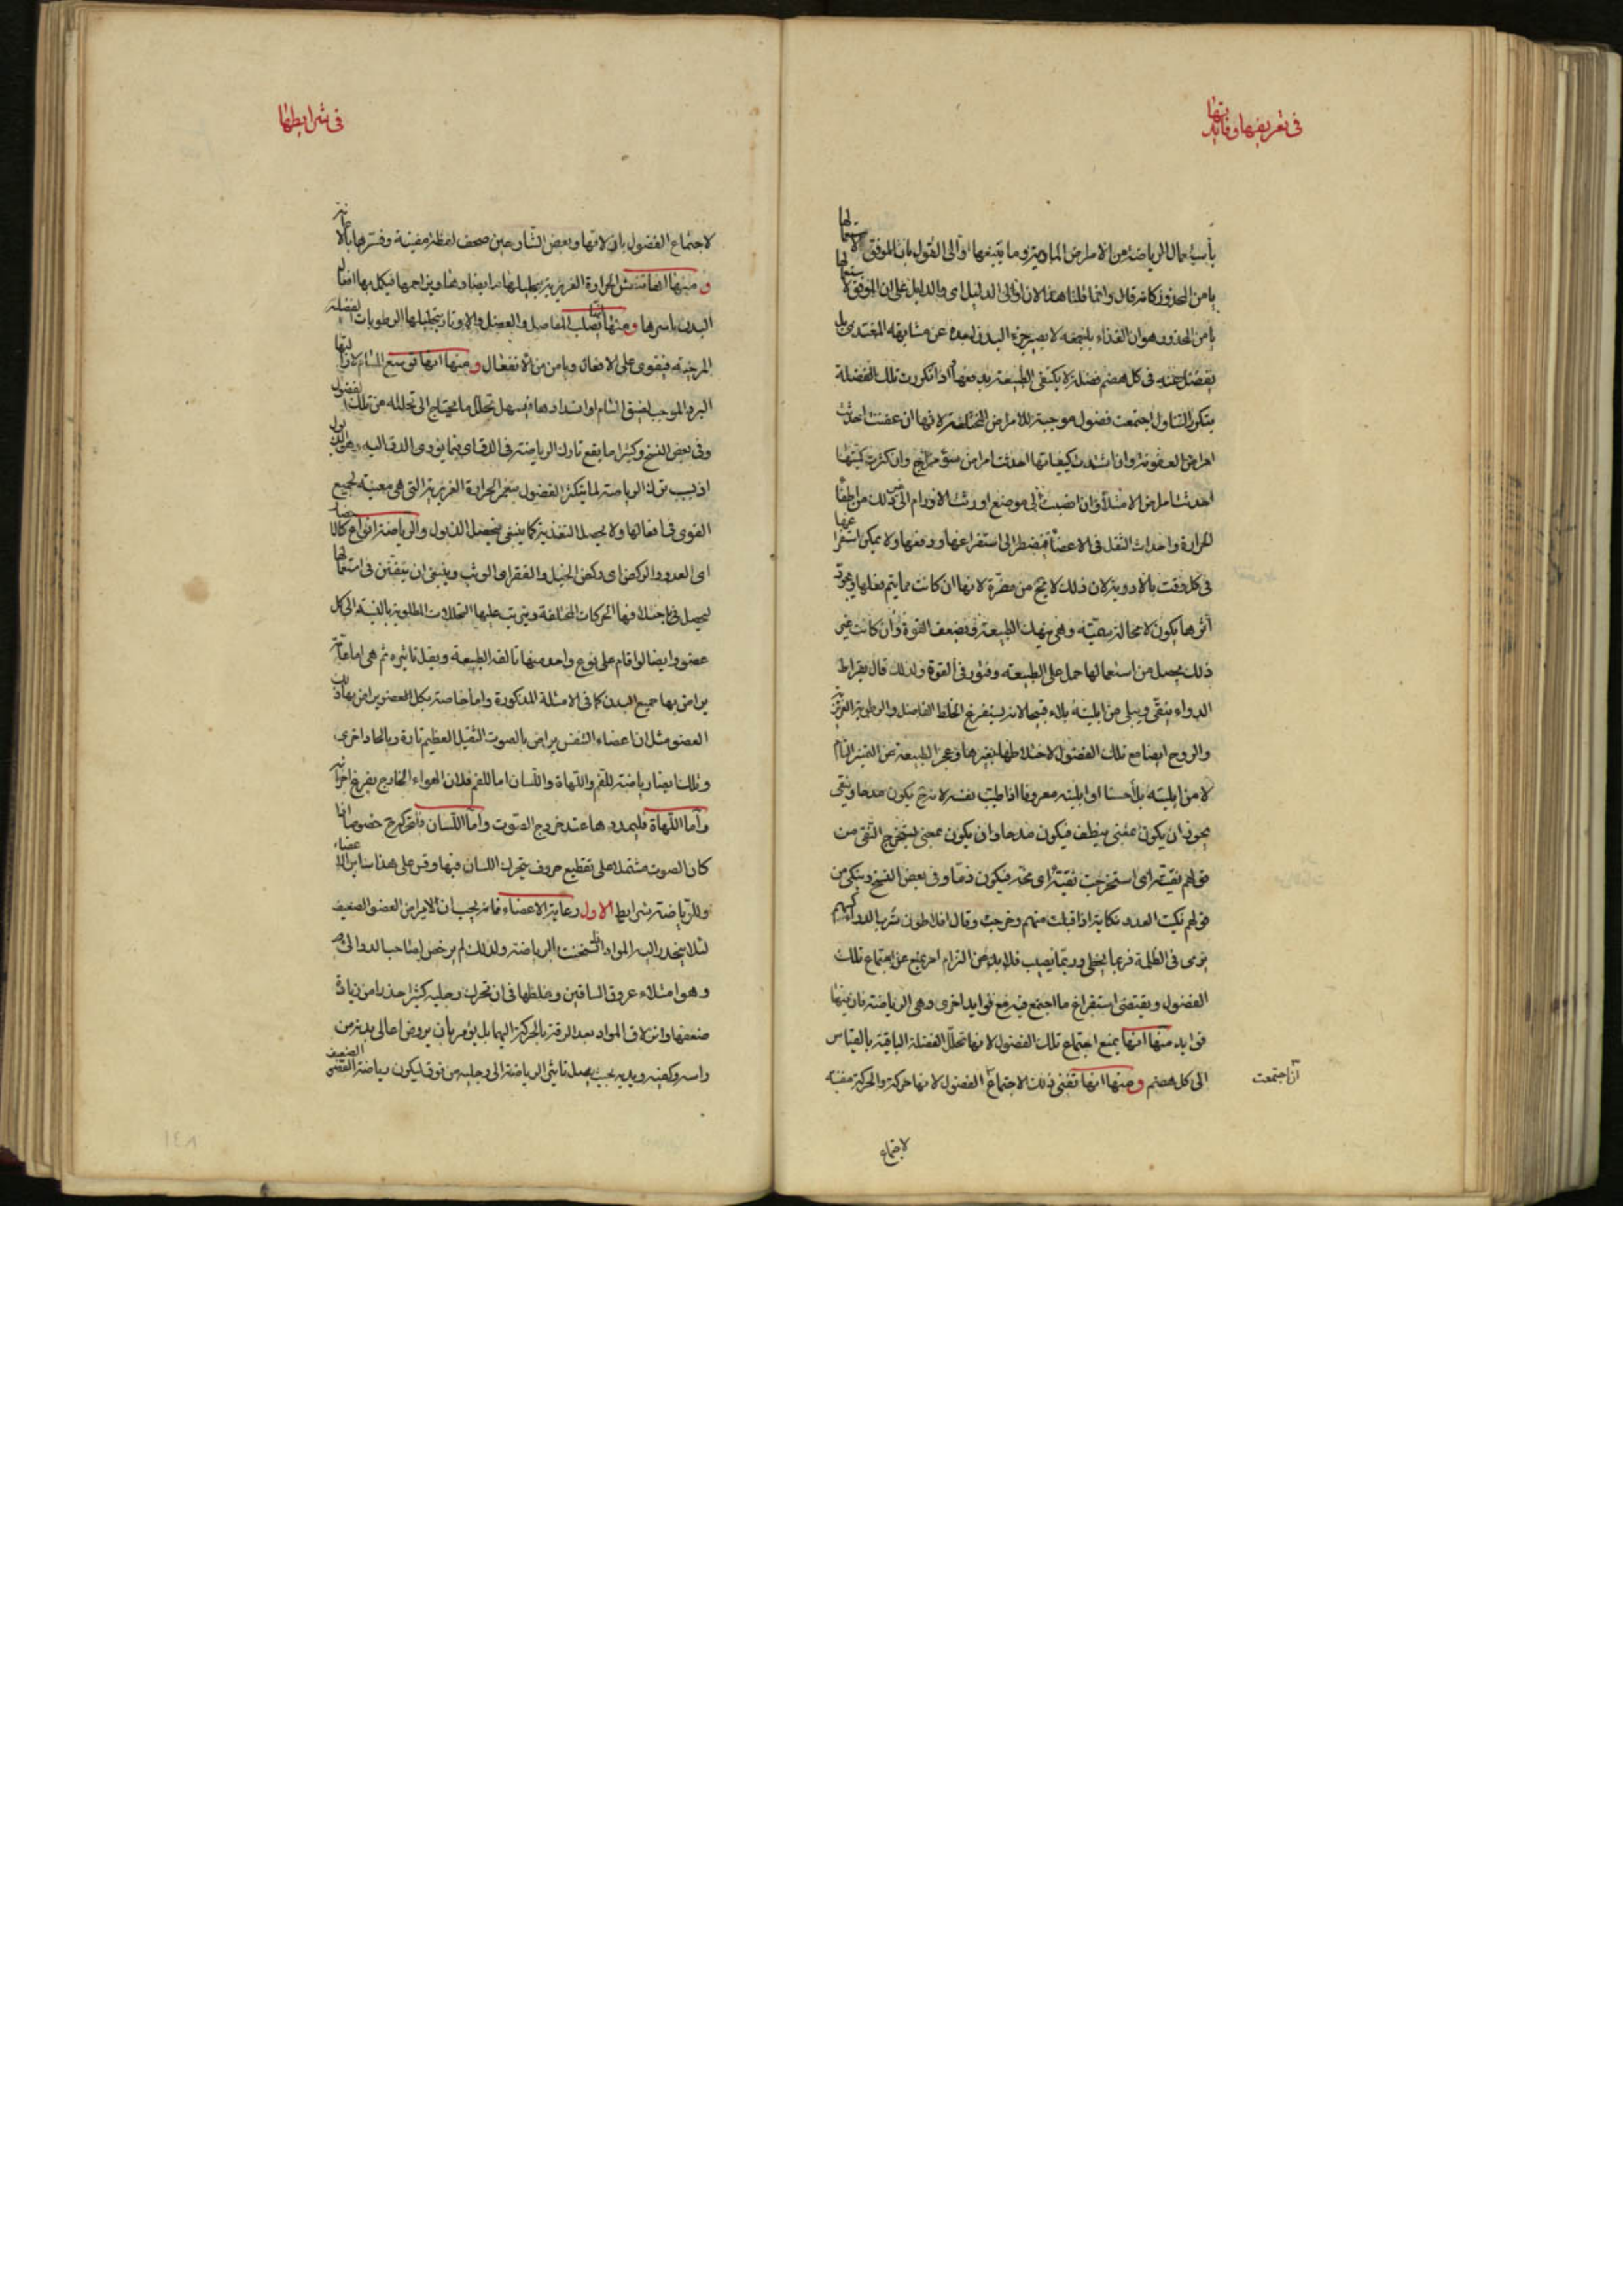 في تعريفها وفايدتها
باستعمال الرياضة من الامراض المادية وما يتبعها اوالى القول بان الموفق لاستعمالها
يامن المحذور كانه قال وانما قلنا هذا لان اوالى الدليل اى والدليل على ان الموفق لاستعمالها
يامن المحذور هوان الغذاء بلنجمه لا يصير جزء البدن لبعده عن مشابهة المغتدى بل
يفضل عنه في كل هضم فضلة لا يكتفى الطبيعة بدفعها واذا تكررت تلك الفضلة
بتكرر التناول اجتمعت فضول موجبة للامراض المختلفة لانها ان عفنت احدثت
امراض العفونة وان اشتدت كيفياتها احدثت امراض سوء مزاج وان كثرت كميتها
احدثت امراض الامتلأ وان انصبت الى موضع اورثت الاورام الى غير ذلك من اطفأ
الحرارة واحداث الثقل في الاعضأ فيضطر الى استفراغها ودفعها ولا يمكن استفراغها
في كل وقت بالادوية لان ذلك لا يخ من مضرة لانها ان كانت مما يتم فعلها وجودة
أثرها يكون لا محالة سمّيته وهي ينهك الطبيعة ويضعف القوة وان كانت غير
ذلك يحصل من استعمالها حمل على الطبيعة وفتور في القوة ولذلك قال بقراط
الدواء ينقّى ويبلى من ابليته بلاء قبيحا لانه يستفرغ الخلط الفاضل والرطوبة الغريزية
والروح ايضا مع تلك الفضول لاختلاطها بغيرها وعجز الطبيعة عن التميز التام
لا من ابليته بلأ حسنا او ابليته معروفا اذا طيبت نفسه لانه ح يكون مدحا وينقى
يجوز ان يكون بمعنى ينظف فيكون مدحا وان يكون بمعنى يستخرج النقى من
قولهم نقيته اى استخرجت نقيته اى مخه فيكون ذما وفي بعض النسخ وينكى من
قولهم نكيت العدو نكاية اذا قتلت منهم وجرحت وقال افلاطون شرب الدواء كسهم
يرمى في الظلمة فربما يخطى وربما يصيب فلا بد من التزام امر يمنع عن اجتماع تلك
الفضول ويقتضى استفراغ ما اجتمع فيه مع فوايد اخرى وهى الرياضة فان فيها
فوايد منها انها يمنع اجتماع تلك الفضول لانها تحلّل الفضلة الباقية بالقياس
الى كل هضم ومنها انها تفنى ذلك الاجتماع الفضول لانها حركة والحركة مفنية
اذا اجتمعت
لاجتماع
في شرايطها
لاجتماع الفضول بازلاقها وبعض الشارحين صحف لفظة مفنية وفسرها بالاعانة
ومنها انها تنعش الحرارة الغريزية بتحليلها ما يضادها ويزاحمها فيكمل بها افعال
البدن باسرها ومنها انها تصلب المفاصل والعضل والاوتار بتحليلها الرطوبات الفضلية
المرخية فيقوى على الافعال ويامن من الانفعال ومنها انها توسع المسام لازالتها
البرد الموجب لضيق المسام او انسدادها فيسهل تحلّل ما يحتاج الى تحلله من تلك الفضول
وفي بعض النسخ وكثيرا ما يقع تارك الرياضة في الدق اى فيما يؤدى الدق اليه وهو الذبول
اذ بسبب ترك الرياضة لما يتكثر الفضول ينغمر الحرارة الغريزية التي هي معينة لجميع
القوى في افعالها ولا يحصل التغذية كما ينبغى فيحصل الذبول والرياضة انواع كالاحضار
اى العدو والركض اى ركض الخيل والقفز اى الوثب وينبغى ان يتفنن في استعمالها
ليحصل من اختلافها الحركات المختلفة ويترتب عليها التحللات المطلوبة بالنسبة الى كل
عضو وايضا لو اقام على نوع واحد منها تالفه الطبيعة ويقل تاثيره ثم هي اما عامة
يراض بها جميع البدن كما في الامثلة المذكورة واما خاصة بكل عضو يراض بها ذلك
العضو مثل ان اعضاء التنفس يراض بالصوت الثقيل العظيم تارة وبالحاد اخرى
وتلك ايضا رياضة للفم واللهاة واللسان اما للفم فلان الهواء الخارج يفرغ اجزائه
وأما اللهاة فليمددها عند خروج الصوت وأما اللسان فلتحركه ح خصوصا اذا
كان الصوت مشتملا على تقطيع حروف يتحرك اللسان فيها وقس على هذا ساير الاعضاء
وللرياضة شرايط الاول رعاية الاعضاء فانه يجب ان لا يراض العضو الضعيف
لئلا ينحدر اليه المواد التي سخنت بالرياضة ولذلك لم يرخص لصاحب الدوالى
وهو امتلاء عروق الساقين وغلظها في ان تحرك رجليه كثيرا حذرا من زيادة
ضعفها وانزلاق المواد بعد الرقة بالحركة اليهما بل يؤمر بأن يروض اعالى بدنه من
راسه وكفيه ويديه بحيث يصل تاثير الرياضة الى رجليه من فوق ليكون رياضة العضو الضعيف